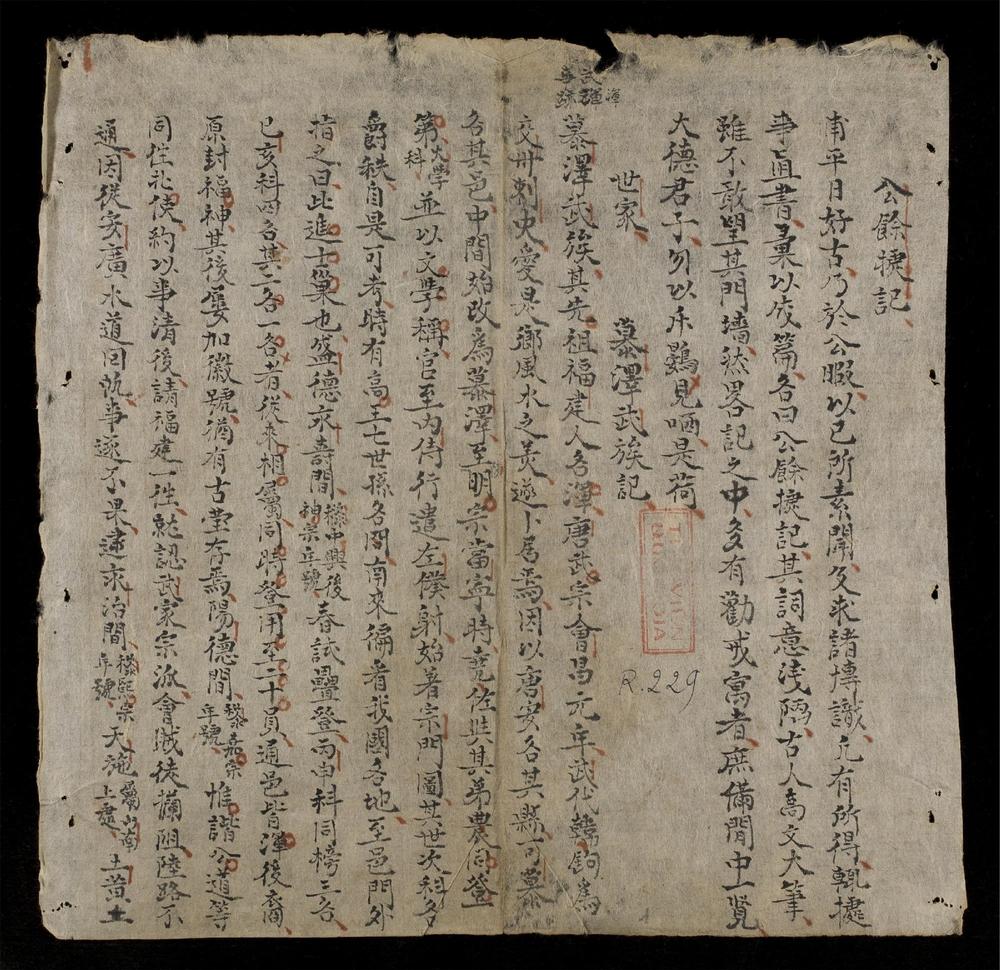 公餘捷記
甫平日好古乃於公暇以已所素聞及求諸博識凢有所得輒捷
事直書彙以成篇名曰公餘捷記其詞意浅陋古人高文大筆
雖不敢望其門墻然畧記之中多有勸戒寓者庶備閒中一覽
大德君子勿以斥鷃見哂是荷
世家 慕澤武族記
武渾
事跡
慕澤武族其先祖福建人名渾唐武宗會昌元年武代韓鉤爲
交州刺史愛是鄉風水之美遂卜居焉因以唐安名其縣可慕
名其邑中間始改爲慕澤至明宗當宁時堯佐與其弟農同登
第大學科並以文學稱官至內侍行遣左僕射始着宗門圖其世次科名
爵秩自是可考時有高王七世孫名同南來徧看我國各地至邑門外
指之曰此進士巢也盛德永壽間黎中興後神宗年號春試疊登丙申科同榜三名
已亥科四名其二名一名者從來相屬同時登用至二十員通邑皆渾後裔
原封福神其後屡加徽號猶有古塋存焉陽德間黎嘉宗年號惟諧公道等
同往北使約以事清後請福建一徃就認武家宗派會賊徒攔阻陸路不
通因從安廣水道回執事遂不果逮永治間黎熙宗年號天施屬山南上處土黄土
R.229